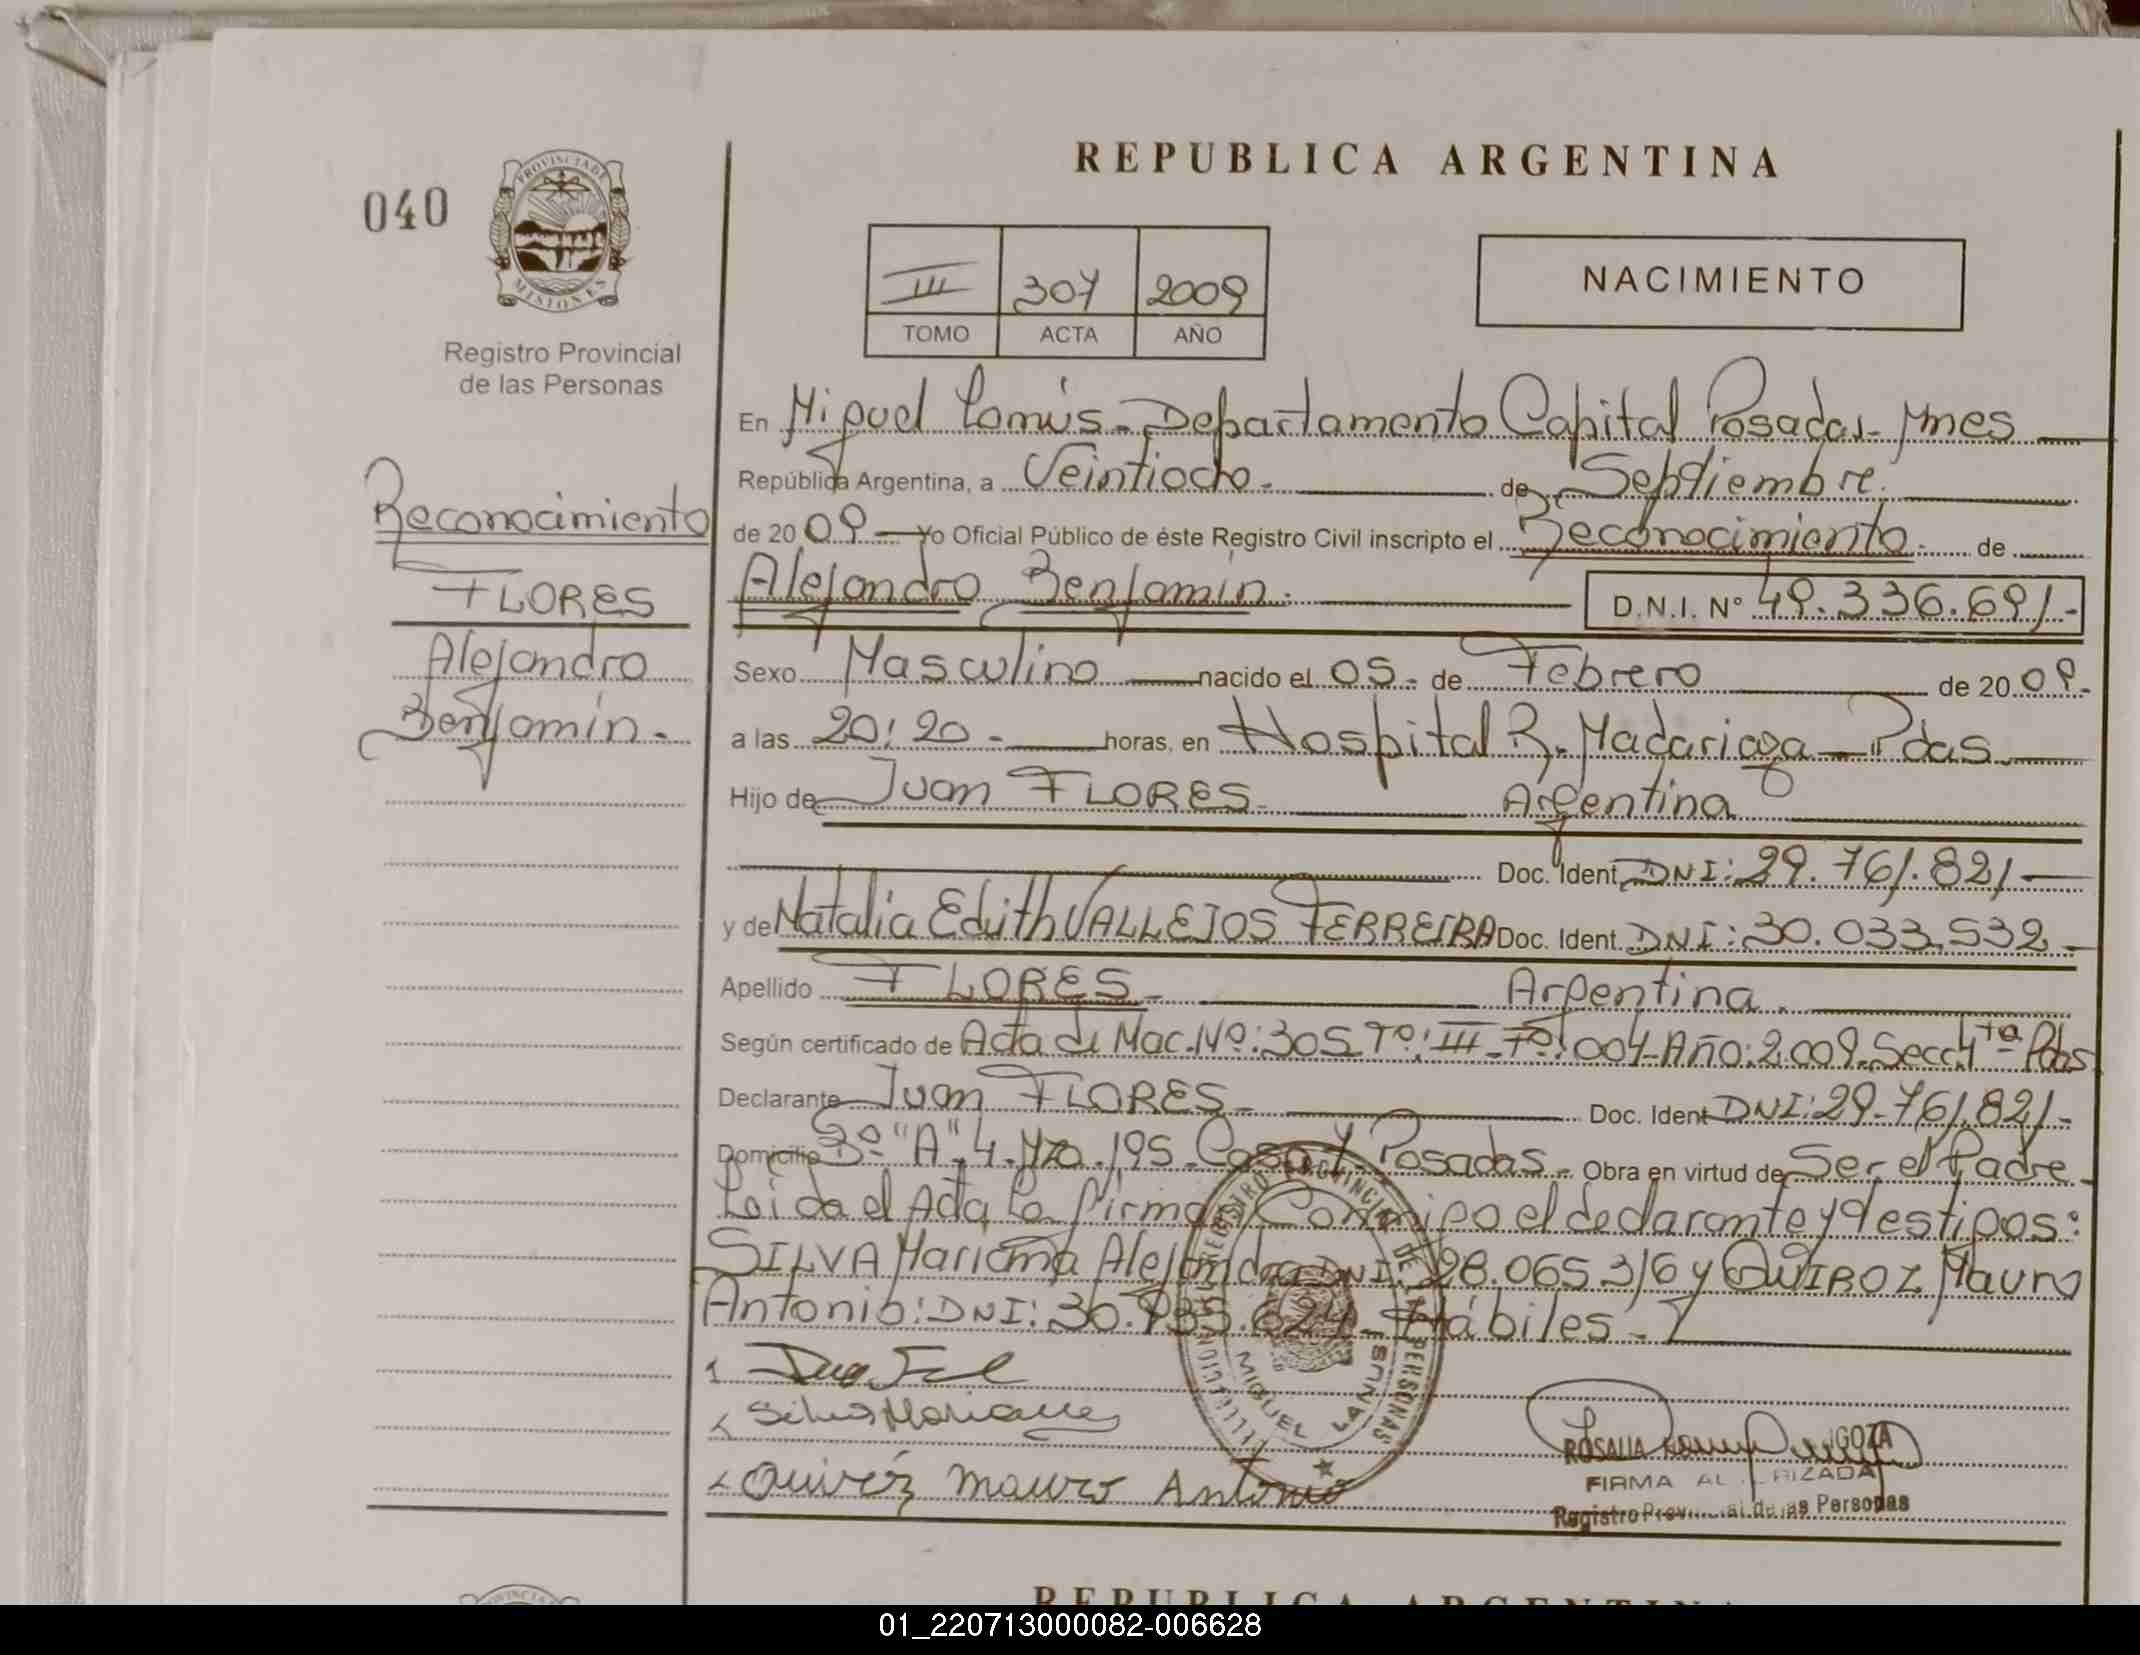 REPUBLICA ARGENTINA
040
PROVINCIA DE
MISIONES
Registro Provincial
de las Personas
III 307 2009
TOMO ACTA AÑO
NACIMIENTO
Reconocimiento
FLORES
Alejandro
Benjamín.-
En Miguel Lanús - Departamento Capital Posadas - Mnes
República Argentina, a Veintiocho.- de Septiembre.
de 20 09 Yo Oficial Público de éste Registro Civil inscripto el Reconocimiento.- de
Alejandro Benjamín.- D.N.I. Nº 49.336.691.-
Sexo Masculino nacido el 05.- de Febrero de 20 09.-
a las 20:20.- horas, en Hospital R. Madariaga - Pdas.
Hijo de Juan FLORES.- Argentina
Doc. Ident. DNI: 29.761.821
y de Natalia Edith VALLEJOS FERREIRA Doc. Ident. DNI: 30.033.532.-
Apellido FLORES.- Argentina.
Según certificado de Acta de Nac. Nº: 305. Tº: III. Fº: 004 - Año: 2.009. Secc. 4ta Pdas
Declarante Juan FLORES.- Doc. Ident DNI: 29.761.821.-
Domicilio Bº "A" 4. Mza. 195. Casa Posadas.- Obra en virtud de Ser el Padre
Leida el Acta la firman Conmigo el declarante y testigos:
SILVA Mariana Alejandra DNI: 28.065.316 y QUIROZ Mauro
Antonio: DNI: 30. Hábiles.-
Silva Mariana
Quiróz Mauro Antonio
REGISTRO PROVINCIAL DE LAS PERSONAS
MIGUEL LANUS
ROSALIA
FIRMA AUTORIZADA
Registro Provincial de las Personas
REPUBLICA ARGENTINA
01_220713000082-006628